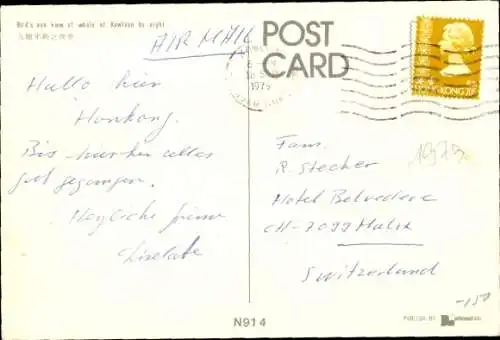 Bird's eye view of whole of Kowloon by night
九龍半島之夜景
AIR MAIL
POST
CARD
1975
HONG KONG
Hallo hier
Honkong.
Bis hierher alles
gut gegangen.
Herzliche Grüsse
Liselotte
Fam.
R. Stecher
Hotel Belvedere
CH-7099 Malix
Switzerland
1975
-150
N914